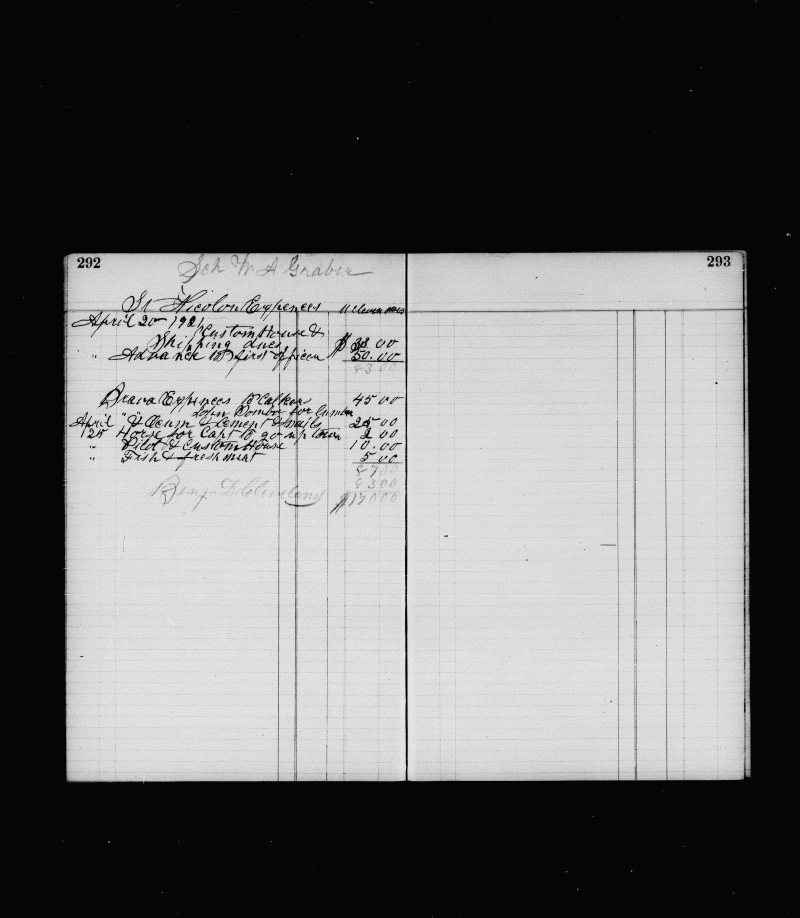 292
Sch W A Graber
St Nicolon Expences
April 20 1921
Custom House &
Shipping dues $ 33.00
" Advance to first officer 50.00
83 00
Brava Expences to Calker 45 00
for Lumber
April " Ocum & Cement & nails 25 00
125 Horse for Capt to go up town 2 00
" Pilot & Custom House 10.00
" Fish & freshment 5 00
87 00
83 00
Benj. D. Cleveland $170 00
293